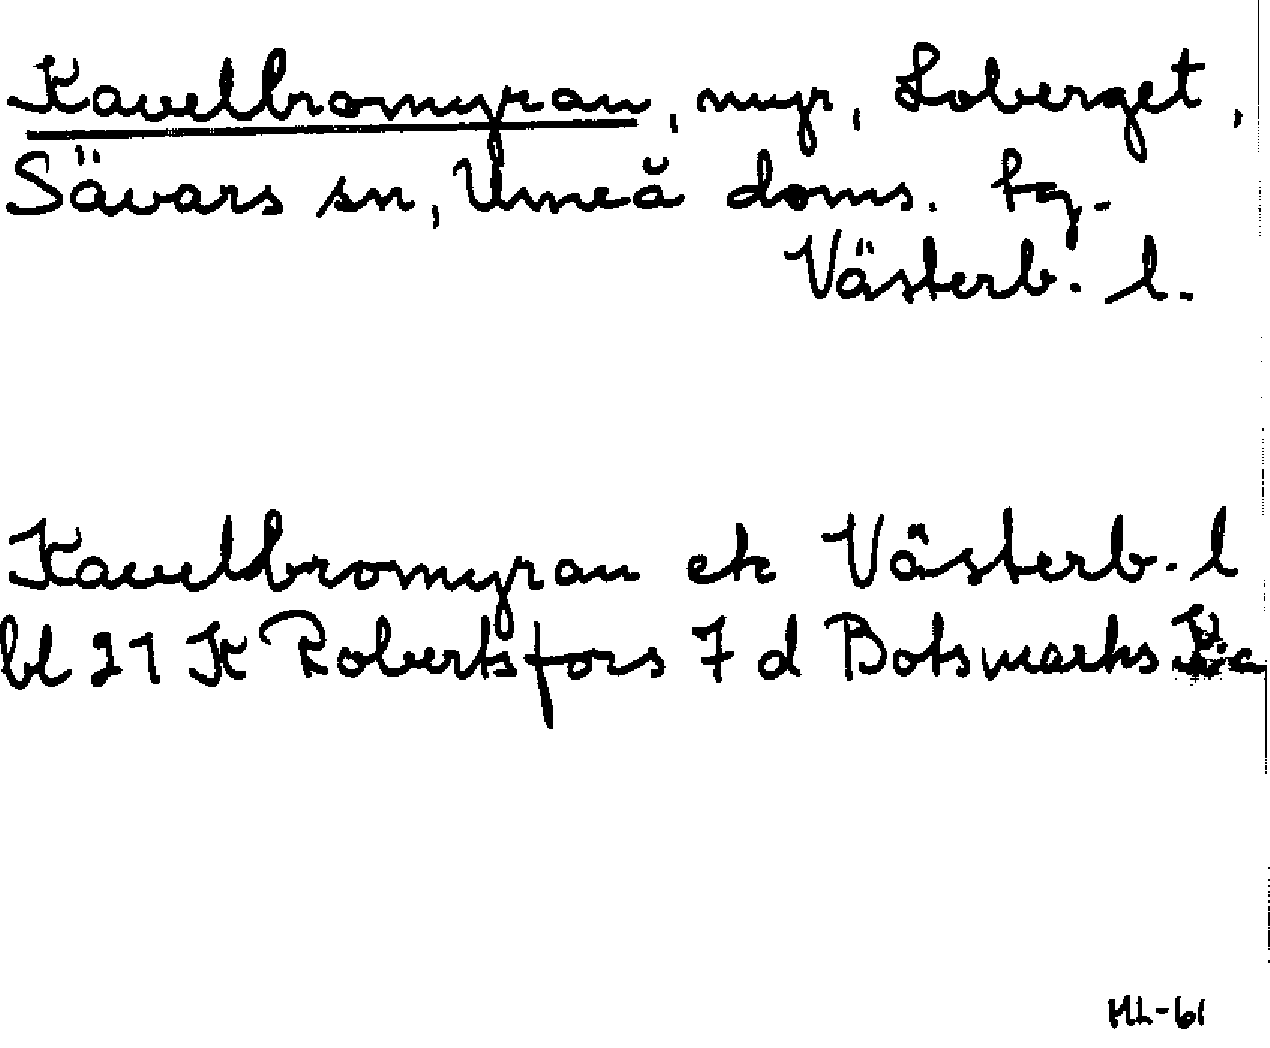 Kavelbromyran, myr, Loberget,
Sävars sn, Umeå doms. tg.
Västerb. l.
Kavelbromyran ek Västerb. l
bl 21 K Robertsfors 7 d Botsmarks
ML-61